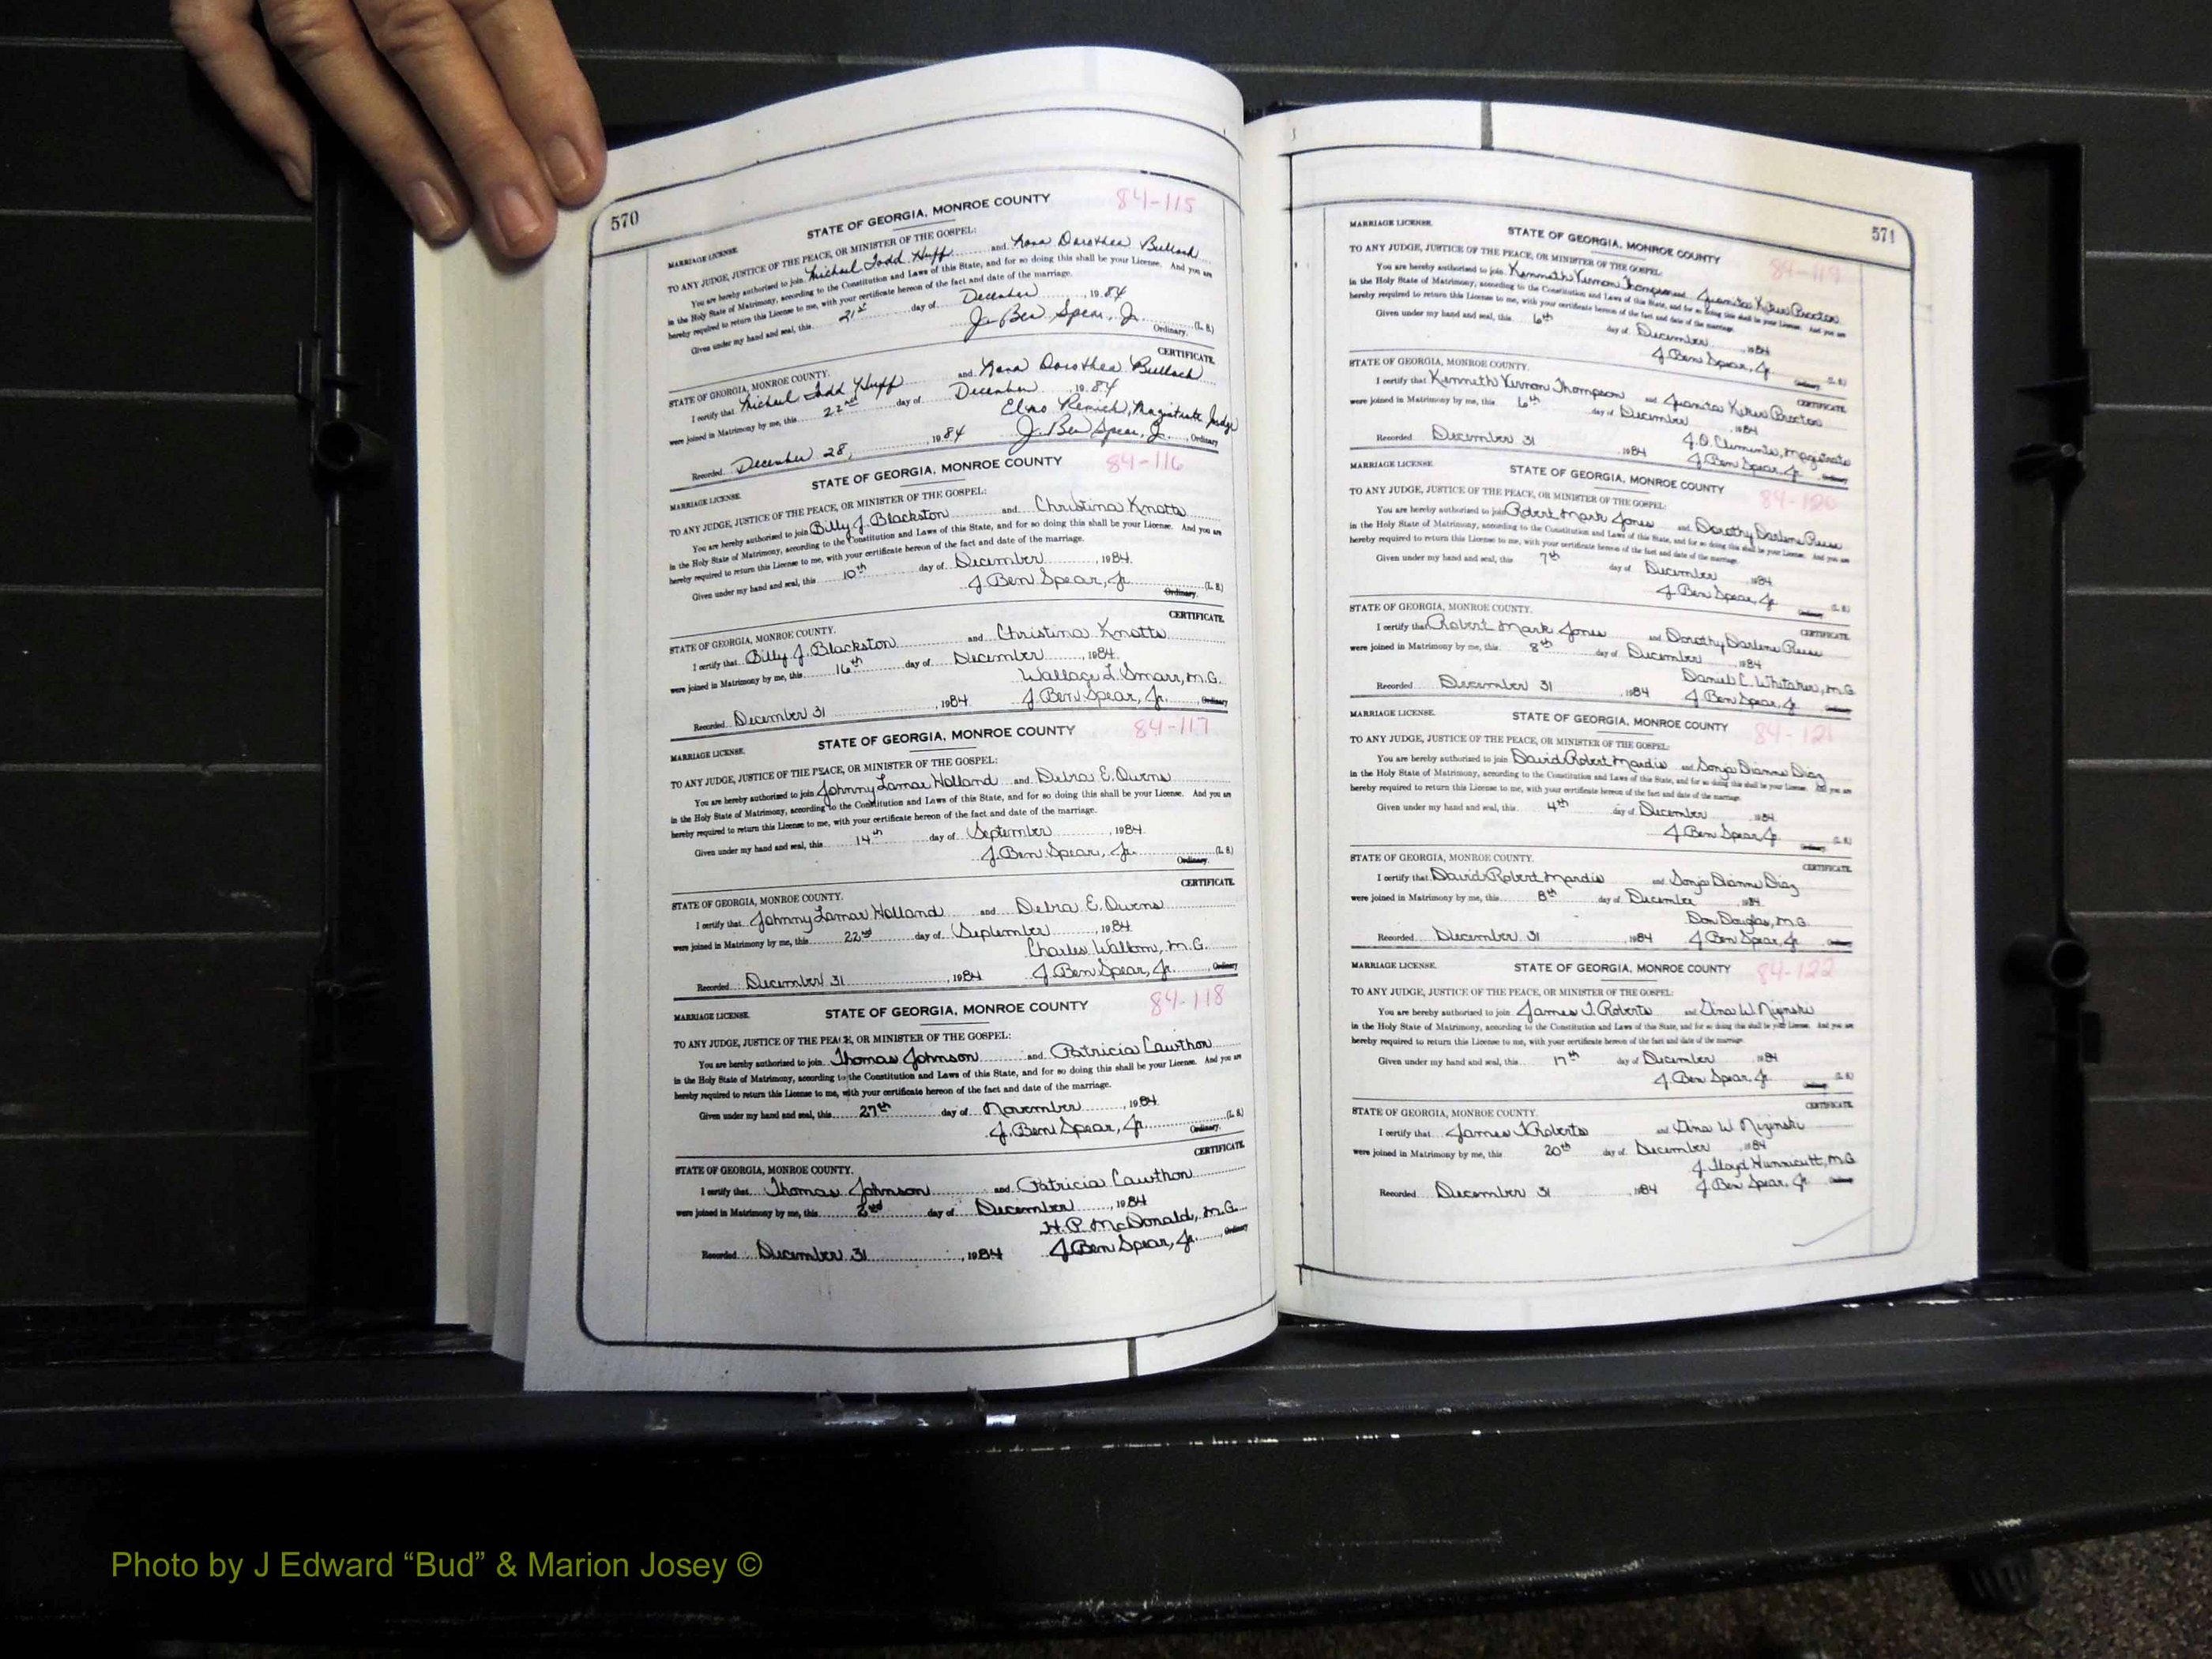 570
84-115
STATE OF GEORGIA, MONROE COUNTY
MARRIAGE LICENSE.
TO ANY JUDGE, JUSTICE OF THE PEACE, OR MINISTER OF THE GOSPEL:
You are hereby authorized to join Michael Todd Huff and Nora Dorothea Bulloch
in the Holy State of Matrimony, according to the Constitution and Laws of this State, and for so doing this shall be your License. And you are
hereby required to return this License to me, with your certificate hereon of the fact and date of the marriage.
Given under my hand and seal, this 21st day of December, 1984
J. Ben Spear, Jr. (L. S.)
Ordinary.
CERTIFICATE.
STATE OF GEORGIA, MONROE COUNTY.
I certify that Michael Todd Huff and Nora Dorothea Bulloch
were joined in Matrimony by me, this 22nd day of December, 1984
Magistrate Judge
Recorded December 28, 1984 J. Ben Spear, Jr., Ordinary
84-116
STATE OF GEORGIA, MONROE COUNTY
MARRIAGE LICENSE.
TO ANY JUDGE, JUSTICE OF THE PEACE, OR MINISTER OF THE GOSPEL:
You are hereby authorized to join Billy J. Blackston and Christina Knotts
in the Holy State of Matrimony, according to the Constitution and Laws of this State, and for so doing this shall be your License. And you are
hereby required to return this License to me, with your certificate hereon of the fact and date of the marriage.
Given under my hand and seal, this 10th day of December, 1984
J. Ben Spear, Jr. (L. S.)
Ordinary.
CERTIFICATE.
STATE OF GEORGIA, MONROE COUNTY.
I certify that Billy J. Blackston and Christina Knotts
were joined in Matrimony by me, this 16th day of December, 1984
Wallace L. Smarr, M.G.
Recorded December 31, 1984 J. Ben Spear, Jr., Ordinary
84-117
STATE OF GEORGIA, MONROE COUNTY
MARRIAGE LICENSE.
TO ANY JUDGE, JUSTICE OF THE PEACE, OR MINISTER OF THE GOSPEL:
You are hereby authorized to join Johnny Lamar Holland and Debra E. Owens
in the Holy State of Matrimony, according to the Constitution and Laws of this State, and for so doing this shall be your License. And you are
hereby required to return this License to me, with your certificate hereon of the fact and date of the marriage.
Given under my hand and seal, this 14th day of September, 1984
J. Ben Spear, Jr. (L. S.)
Ordinary.
CERTIFICATE.
STATE OF GEORGIA, MONROE COUNTY.
I certify that Johnny Lamar Holland and Debra E. Owens
were joined in Matrimony by me, this 22nd day of September, 1984
Charles Waltom, M.G.
Recorded December 31, 1984 J. Ben Spear, Jr., Ordinary
84-118
STATE OF GEORGIA, MONROE COUNTY
MARRIAGE LICENSE.
TO ANY JUDGE, JUSTICE OF THE PEACE, OR MINISTER OF THE GOSPEL:
You are hereby authorized to join Thomas Johnson and Patricia Lawthon
in the Holy State of Matrimony, according to the Constitution and Laws of this State, and for so doing this shall be your License. And you are
hereby required to return this License to me, with your certificate hereon of the fact and date of the marriage.
Given under my hand and seal, this 27th day of November, 1984
J. Ben Spear, Jr. (L. S.)
Ordinary.
CERTIFICATE.
STATE OF GEORGIA, MONROE COUNTY.
I certify that Thomas Johnson and Patricia Lawthon
were joined in Matrimony by me, this 2nd day of December, 1984
H. P. McDonald, M.G.
Recorded December 31, 1984 J. Ben Spear, Jr., Ordinary
571
84-119
MARRIAGE LICENSE.
STATE OF GEORGIA, MONROE COUNTY
TO ANY JUDGE, JUSTICE OF THE PEACE, OR MINISTER OF THE GOSPEL:
You are hereby authorized to join Kenneth Vernon Thompson and Juanita Kiker Proctor
in the Holy State of Matrimony, according to the Constitution and Laws of this State, and for so doing this shall be your License. And you are
hereby required to return this License to me, with your certificate hereon of the fact and date of the marriage.
Given under my hand and seal, this 6th day of December, 1984
J. Ben Spear, Jr. (L. S.)
Ordinary.
STATE OF GEORGIA, MONROE COUNTY.
CERTIFICATE.
I certify that Kenneth Vernon Thompson and Juanita Kiker Proctor
were joined in Matrimony by me, this 6th day of December, 1984
J. O. Clements, Magistrate
Recorded December 31, 1984 J. Ben Spear, Jr. Ordinary
84-120
MARRIAGE LICENSE.
STATE OF GEORGIA, MONROE COUNTY
TO ANY JUDGE, JUSTICE OF THE PEACE, OR MINISTER OF THE GOSPEL:
You are hereby authorized to join Robert Mark Jones and Dorothy Darlene Reese
in the Holy State of Matrimony, according to the Constitution and Laws of this State, and for so doing this shall be your License. And you are
hereby required to return this License to me, with your certificate hereon of the fact and date of the marriage.
Given under my hand and seal, this 7th day of December, 1984
J. Ben Spear, Jr. (L. S.)
Ordinary.
STATE OF GEORGIA, MONROE COUNTY.
CERTIFICATE.
I certify that Robert Mark Jones and Dorothy Darlene Reese
were joined in Matrimony by me, this 8th day of December, 1984
Daniel C. Whitaker, M.G.
Recorded December 31, 1984 J. Ben Spear, Jr. Ordinary
84-121
MARRIAGE LICENSE.
STATE OF GEORGIA, MONROE COUNTY
TO ANY JUDGE, JUSTICE OF THE PEACE, OR MINISTER OF THE GOSPEL:
You are hereby authorized to join David Robert Mardis and Sonja Dianne Diaz
in the Holy State of Matrimony, according to the Constitution and Laws of this State, and for so doing this shall be your License. And you are
hereby required to return this License to me, with your certificate hereon of the fact and date of the marriage.
Given under my hand and seal, this 4th day of December, 1984
J. Ben Spear Jr. (L. S.)
Ordinary.
STATE OF GEORGIA, MONROE COUNTY.
CERTIFICATE.
I certify that David Robert Mardis and Sonja Dianne Diaz
were joined in Matrimony by me, this 8th day of December, 1984
Don Douglas, M.G.
Recorded December 31, 1984 J. Ben Spear, Jr. Ordinary
84-122
MARRIAGE LICENSE.
STATE OF GEORGIA, MONROE COUNTY
TO ANY JUDGE, JUSTICE OF THE PEACE, OR MINISTER OF THE GOSPEL:
You are hereby authorized to join James T. Roberts and Gina W. Nizinski
in the Holy State of Matrimony, according to the Constitution and Laws of this State, and for so doing this shall be your License. And you are
hereby required to return this License to me, with your certificate hereon of the fact and date of the marriage.
Given under my hand and seal, this 17th day of December, 1984
J. Ben Spear, Jr. (L. S.)
Ordinary.
CERTIFICATE.
STATE OF GEORGIA, MONROE COUNTY.
I certify that James T. Roberts and Gina W Nizinski
were joined in Matrimony by me, this 20th day of December, 1984
J. Lloyd Hunnicutt, M.G.
Recorded December 31, 1984 J. Ben Spear, Jr. Ordinary
Photo by J Edward “Bud” & Marion Josey ©